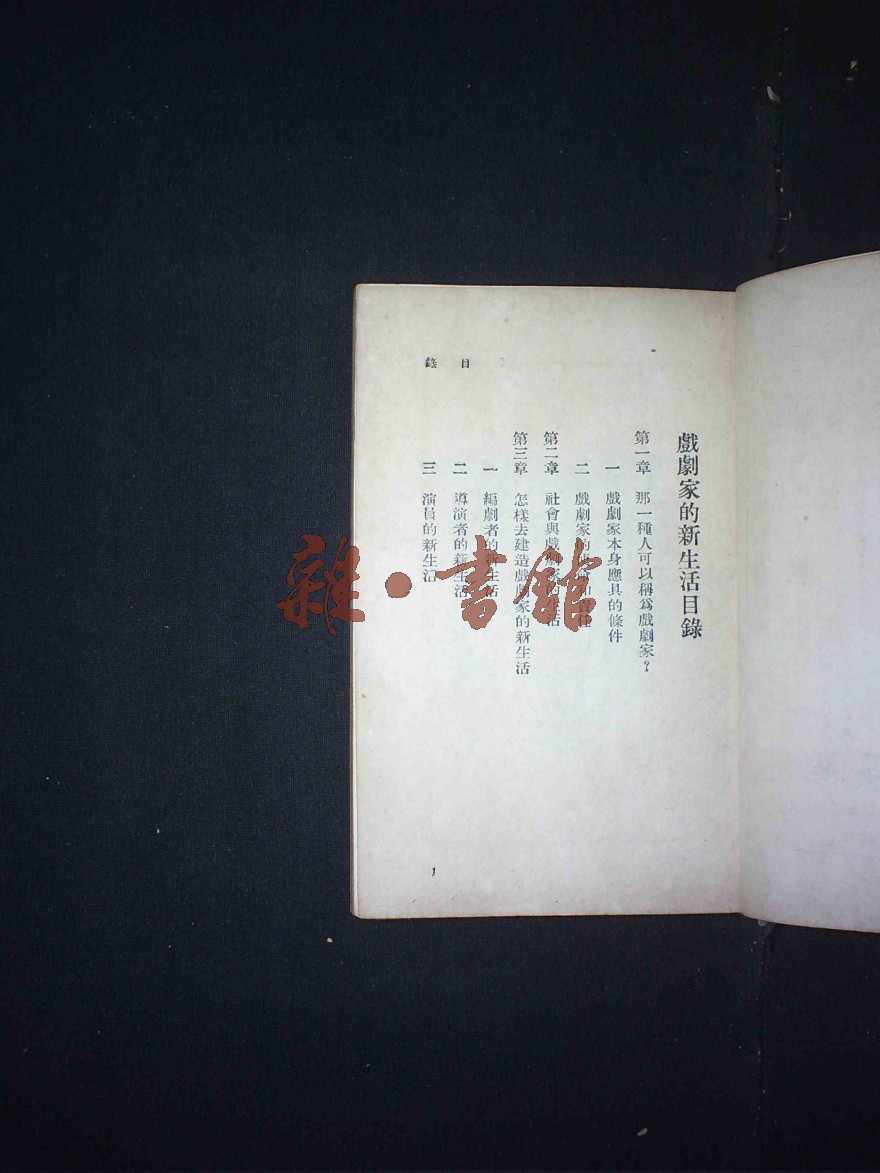 戲劇家的新生活目錄
第一章 那一種人可以稱爲戲劇家？
一 戲劇家本身應具的條件
二 戲劇家的責任
第二章 社會與戲劇家的生活
第三章 怎樣去建造戲劇家的新生活
一 編劇者的新生活
二 導演者的新生活
三 演員的新生活
目錄
1
雜·書館